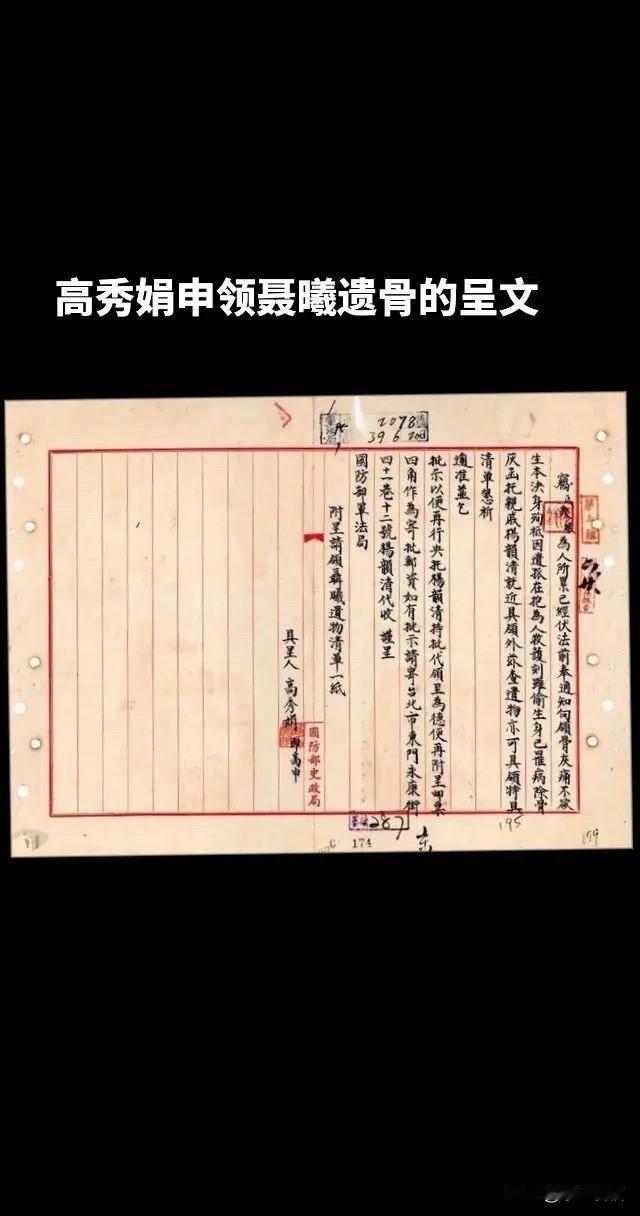 高秀娟申领聂曦遗骨的呈文
2078
39 6 20
竊氏夫聶曦為人所累已經伏法前奉通知向領骨灰痛不欲
生本決身殉祗因遺孤在抱為人救護刻雖偷生身已罹病除骨
灰函托親戚楊韻清就近具領外茲查遺物亦可具領特具
清單懇祈
適准並乞
批示以便再行央托楊韻清持批代領呈為德便再附呈郵票
四角作為寄批郵資如有批示請寄台北市東門永康街
四十一巷十二號楊韻清代收 謹呈
國防部軍法局
附呈請領聶曦遺物清單一紙
具呈人 高秀娟 即高申
國防部史政局
287
174
195